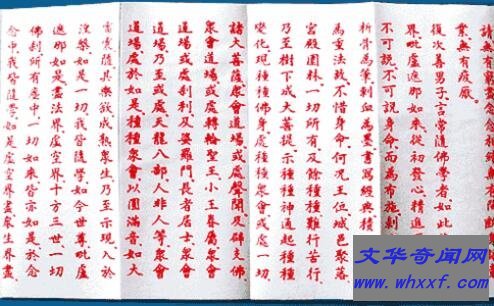 請無有窮盡念念相續無有間斷
業無有疲厭
復次善男子言常隨佛學者如此
界毗盧遮那如來從初發心精進
不可說不可說身命而為布施剝
析骨為筆刺血為墨書寫經典積
為重法故不惜身命何況王位城邑聚落
宮殿園林一切所有及餘種種難行苦行
乃至樹下成大菩提示種種神通起種種
變化現種種佛身處種種眾會或處一切
諸大菩薩眾會道場或處聲聞及辟支佛
眾會道場或處轉輪聖王小王眷屬眾會
道場或處剎利及婆羅門長者居士眾會
道場乃至或處天龍八部人非人等眾會
道場處於如是種種眾會以圓滿音如大
雷震隨其樂欲成熟眾生乃至示現入於
涅槃如是一切我皆隨學如今世尊毗盧
遮那如是盡法界虛空界十方三世一切
佛剎所有塵中一切如來皆亦如是於念
念中我皆隨學如是虛空界盡眾生界盡
文华奇闻网
www.whxxf.com